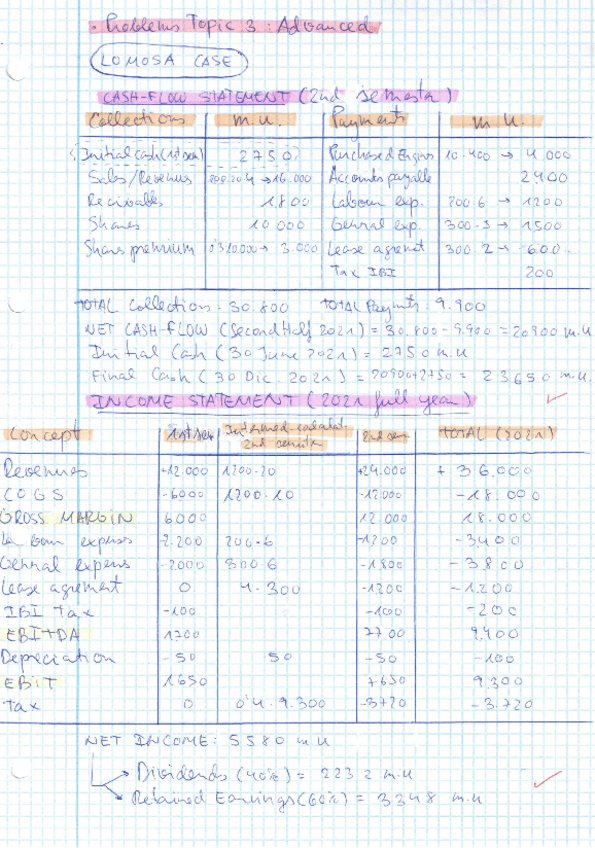 • Problems Topic 3: Advanced
LOMOSA CASE
CASH-FLOW STATEMENT (2nd semester)
Collections m.u. Payments m.u.
Initial cash (1st sem) 2750 Purchased Engins 10.400 → 4 000
Sales/Revenues 800.20.4 → 16.000 Accounts payable 2400
Receivables 1800 Labour exp. 200.6 → 1200
Shares 10 000 General exp. 300.5 → 1500
Shares premium 0'3.10.000 → 3.000 Lease agremt 300.2 → 600
Tax IBI 200
TOTAL Collections: 30.800 TOTAL Paymts: 9.900
NET CASH-FLOW (Second Half 2021) = 30.800 - 9.900 = 20900 m.u
Initial Cash (30 June 2021) = 2750 m.u
Final Cash (30 Dic. 2021) = 20900+2750 = 23650 m.u.
INCOME STATEMENT (2021 full year)
Concept 1st sem 2nd semester 2nd sem TOTAL (2021)
Revenues +12.000 1200.20 +24.000 + 36.000
COGS -6000 1200.10 -12.000 -18.000
GROSS MARGIN 6000 12.000 18.000
Labour expenses -2.200 200.6 -1200 -3400
General expens -2000 300.6 -1800 -3800
Lease agrement 0 4.300 -1200 -1.200
IBI Tax -100 -100 -200
EBITDA 1700 7700 9.400
Depreciation -50 50 -50 -100
EBIT 1650 7650 9.300
Tax 0 0'4.9.300 -3720 -3.720
NET INCOME: 5580 m.u
Dividends (40%) = 2232 m.u
Retained Earnings (60%) = 3348 m.u